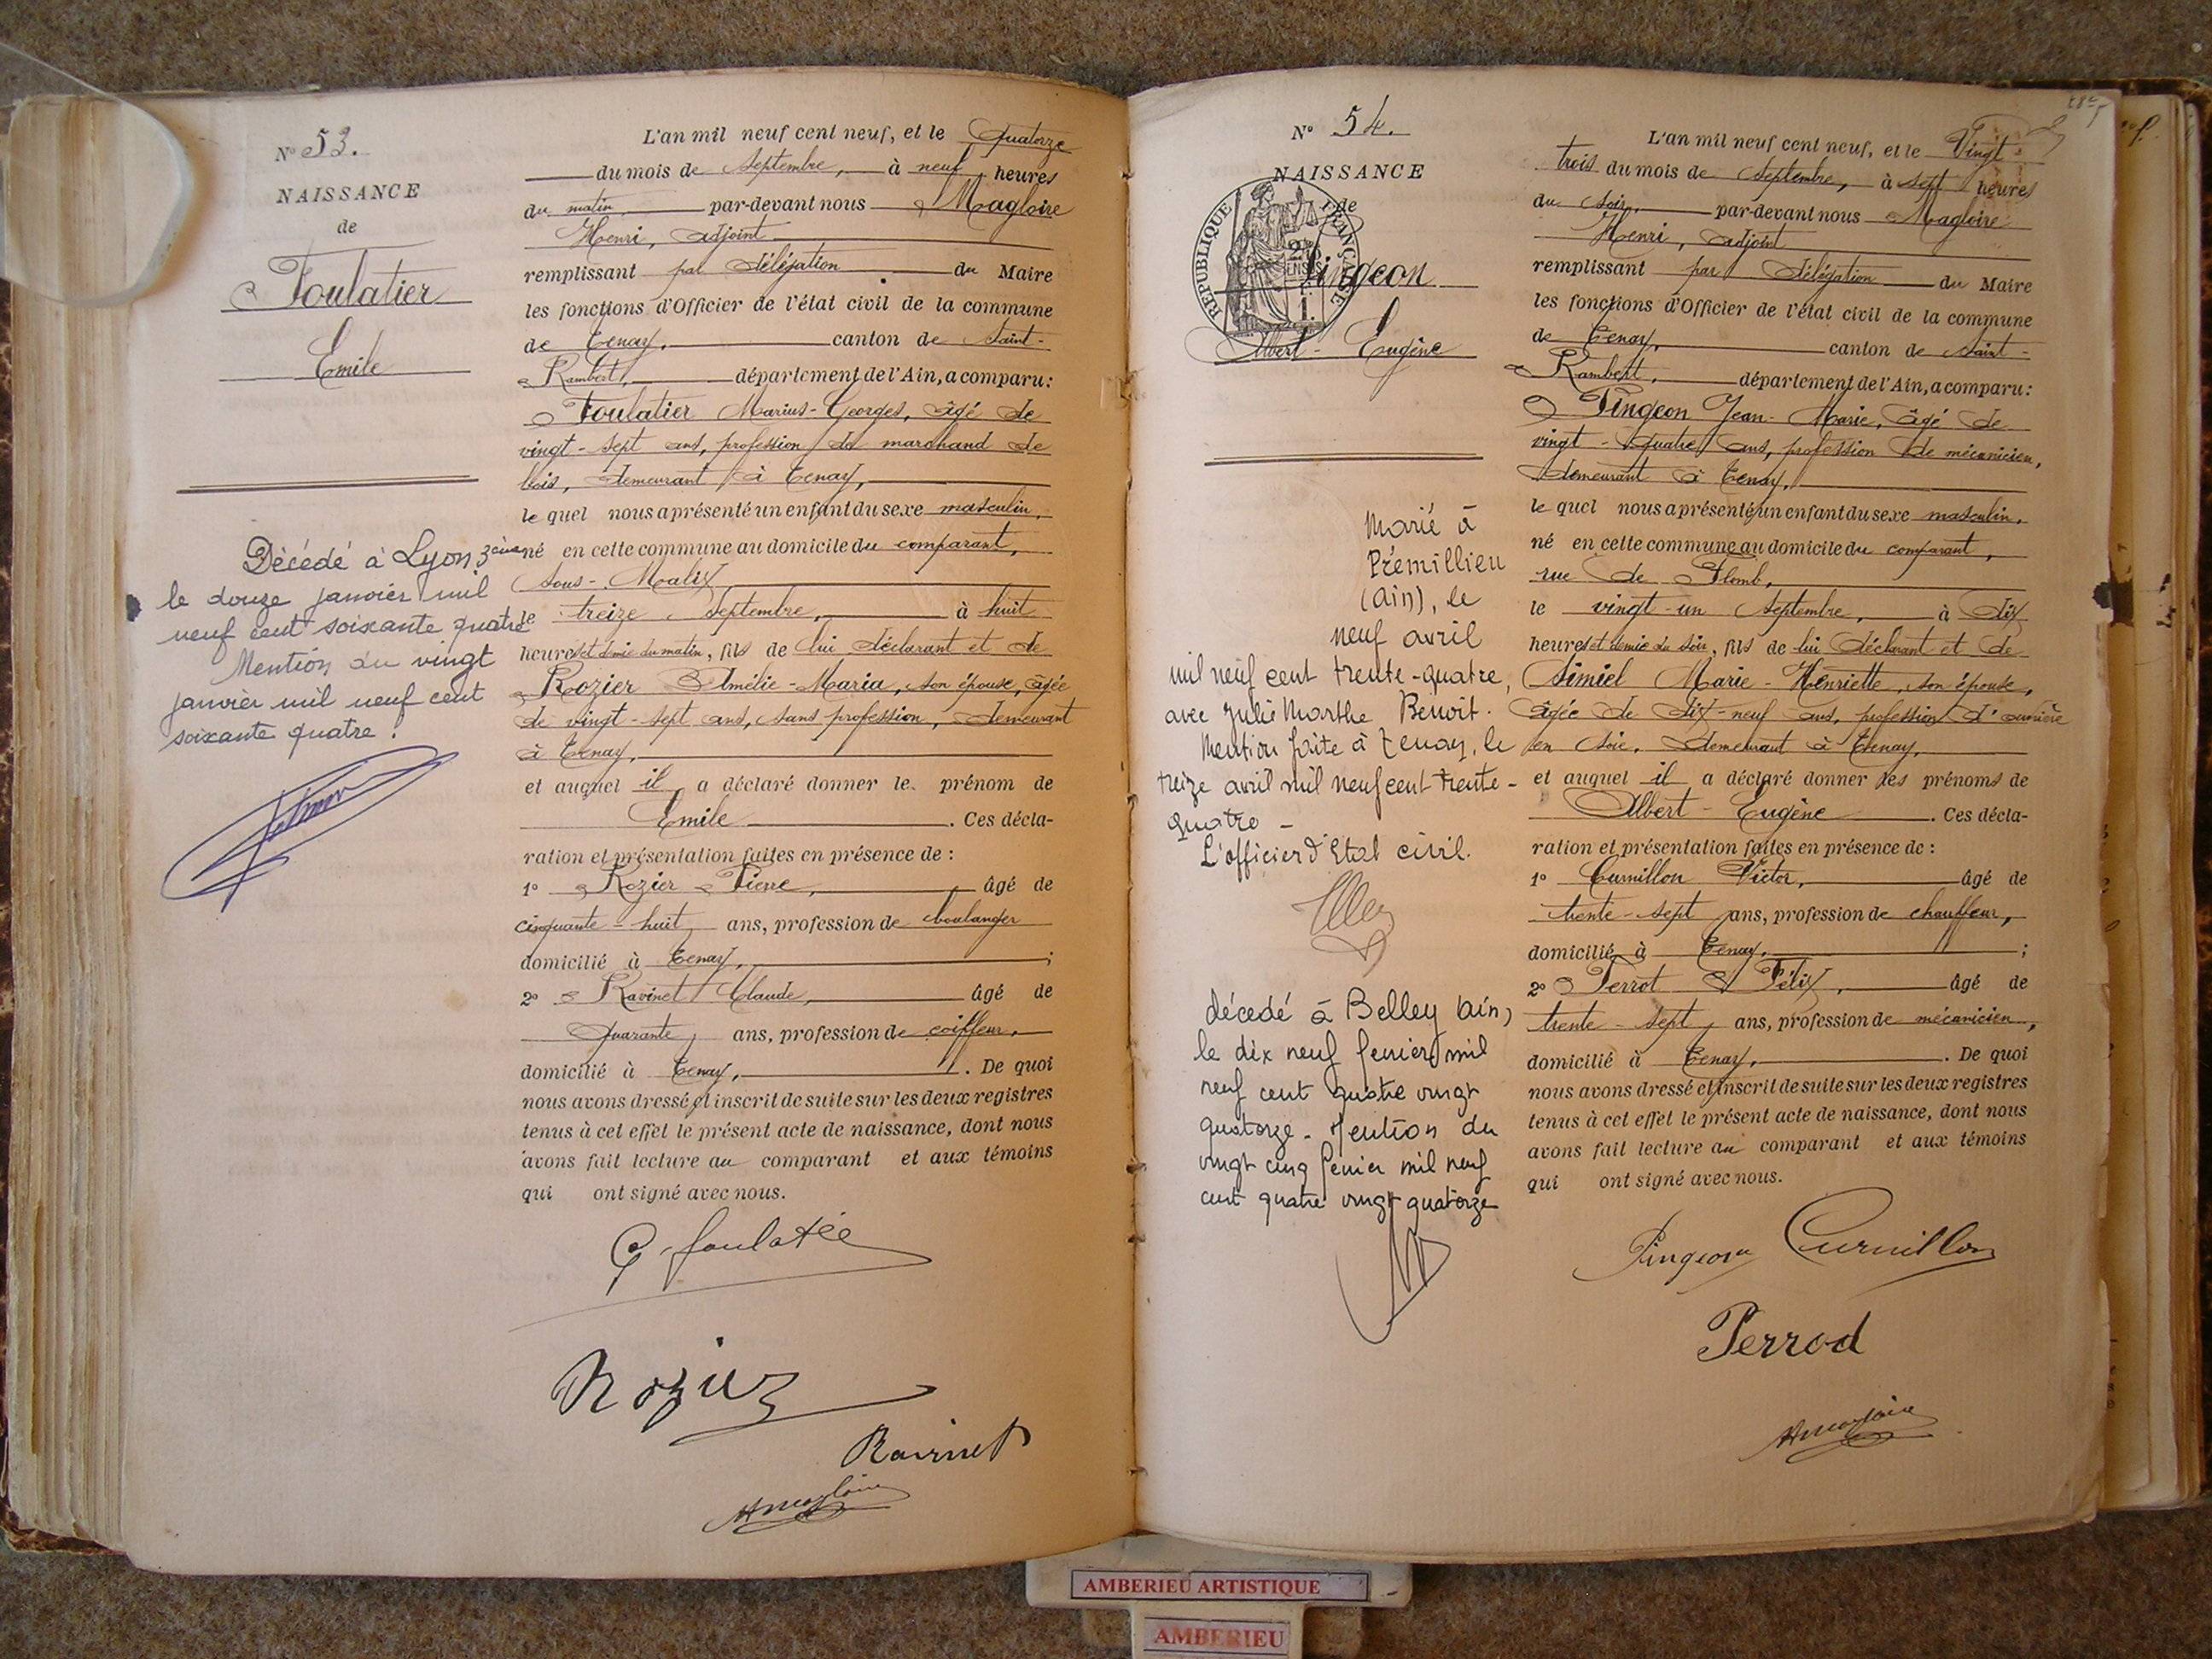 N° 53.
NAISSANCE
de
Foulatier
Emile
Décédé à Lyon 3ème
le douze janvier mil
neuf cent soixante quatre
Mention du vingt
janvier mil neuf cent
soixante quatre.
L'an mil neuf cent neuf, et le Quatorze
du mois de Septembre, à neuf heures
du matin par-devant nous Magloire
Henri, adjoint
remplissant par délégation du Maire
les fonctions d'Officier de l'état civil de la commune
de Tenay, canton de Saint-
Rambert, département de l'Ain, a comparu:
Foulatier Marius-Georges, âgé de
vingt-sept ans, profession de marchand de
bois, demeurant à Tenay,
le quel nous a présenté un enfant du sexe masculin,
né en cette commune au domicile du comparant,
Sous-Malix
le treize Septembre, à huit
heures et demie du matin, fils de lui déclarant et de
Rozier Amélie-Maria, son épouse, âgée
de vingt-sept ans, sans profession, demeurant
à Tenay,
et auquel il a déclaré donner le prénom de
Emile. Ces décla-
ration et présentation faites en présence de :
1° Rozier Pierre, âgé de
cinquante-huit ans, profession de boulanger
domicilié à Tenay, ;
2° Ravinet Claude, âgé de
Quarante ans, profession de coiffeur,
domicilié à Tenay, . De quoi
nous avons dressé et inscrit de suite sur les deux registres
tenus à cet effet le présent acte de naissance, dont nous
avons fait lecture au comparant et aux témoins
qui ont signé avec nous.
G. foulatié
Rozier
Ravinet
HMagloire
N° 54.
NAISSANCE
de
RÉPUBLIQUE FRANÇAISE
Pingeon
Albert-Eugène
Marié à
Prémillieu
(Ain), le
neuf avril
mil neuf cent trente-quatre,
avec Julie Marthe Benoit.
Mention faite à Tenay, le
treize avril mil neuf cent trente-
quatre -
L'officier d'Etat civil.
décédé à Belley Ain,
le dix neuf fevrier mil
neuf cent quatre vingt
quatorze - Mention du
vingt cinq fevrier mil neuf
cent quatre vingt quatorze
L'an mil neuf cent neuf, et le Vingt-
trois du mois de Septembre, à sept heures
du soir, par-devant nous Magloire
Henri, adjoint
remplissant par délégation du Maire
les fonctions d'Officier de l'état civil de la commune
de Tenay, canton de Saint-
Rambert, département de l'Ain, a comparu:
Pingeon Jean-Marie, âgé de
vingt-quatre ans, profession de mécanicien,
demeurant à Tenay,
le quel nous a présenté un enfant du sexe masculin,
né en cette commune au domicile du comparant,
rue de Plomb,
le vingt-un Septembre, à dix
heures et demie du soir, fils de lui déclarant et de
Simiel Marie-Henriette, son épouse,
âgée de dix-neuf ans, profession d'ouvrière
en soie, demeurant à Tenay,
et auquel il a déclaré donner les prénoms de
Albert-Eugène. Ces décla-
ration et présentation faites en présence de :
1° Curnillon Victor, âgé de
trente-sept ans, profession de chauffeur,
domicilié à Tenay, ;
2° Perrot Félix, âgé de
trente-sept ans, profession de mécanicien,
domicilié à Tenay, . De quoi
nous avons dressé et inscrit de suite sur les deux registres
tenus à cet effet le présent acte de naissance, dont nous
avons fait lecture au comparant et aux témoins
qui ont signé avec nous.
Pingeon Curnillon
Perrod
HMagloire
AMBERIEU ARTISTIQUE
AMBERIEU